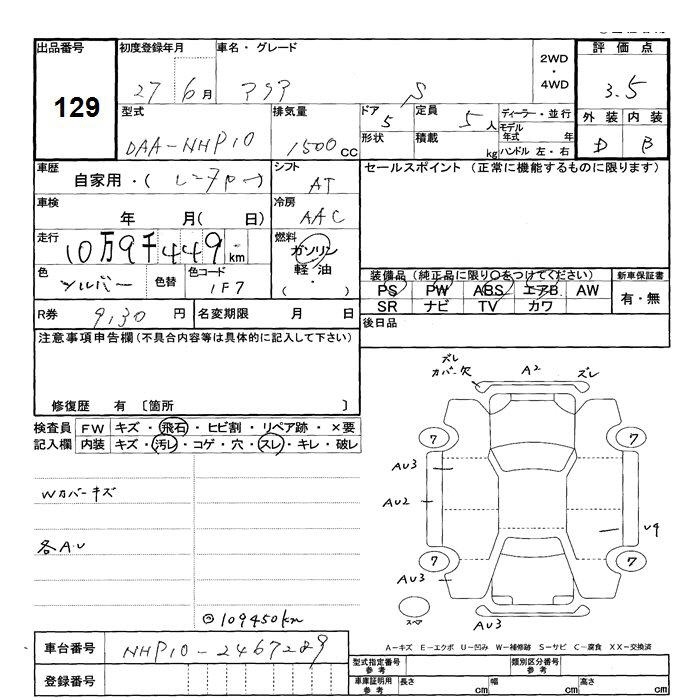 出品番号 初度登録年月 車名・グレード 評価点
129 27 6月 アクア S 2WD・4WD 3.5
型式 排気量 ドア 定員 ディーラー・並行 外装 内装
DAA-NHP10 1500cc 5 5人 モデル年式 年 D B
形状 積載 kg ハンドル 左・右
車歴 シフト セールスポイント(正常に機能するものに限ります)
自家用・(レンタアー) AT
車検 冷房
年 月(日) AAC
走行 燃料
10万9千449km ガソリン
軽油
・
( )
色 色替 色コード 装備品(純正品に限り○をつけてください) 新車保証書
シルバー 1F7 PS PW ABS エアB AW 有・無
SR ナビ TV カワ
R券 9,130円 名変期限 月 日 後日品
注意事項申告欄(不具合内容等は具体的に記入して下さい)
修復歴 有〔箇所 〕
検査員 FW キズ・飛石・ヒビ割・リペア跡・×要
記入欄 内装 キズ・汚レ・コゲ・穴・スレ・キレ・破レ
ズレ
カバー欠 A2 ズレ
7 7
AU3
Wカバーキズ
AU2
U9
各A.U
7 7
AU3
スペア
AU3
109450km
A-キズ E-エクボ U-凹み W-補修跡 S-サビ C-腐食 XX-交換済
車台番号 NHP10-2467289
型式指定番号 参考 類別区分番号 参考
登録番号
車庫証明用 参考 長さ cm 幅 cm 高さ cm